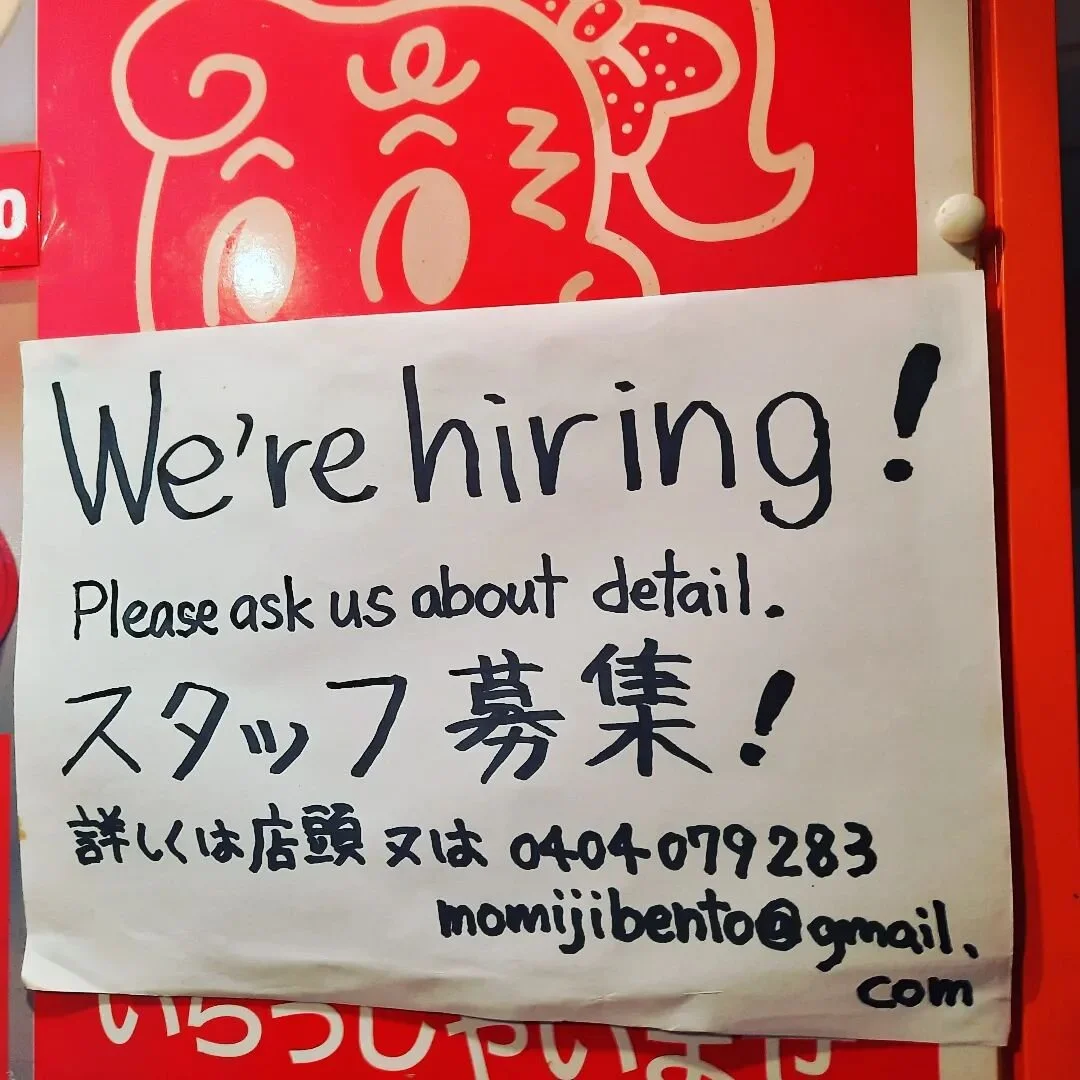 0
We're hiring!
Please ask us about detail.
スタッフ募集!
詳しくは店頭 又は 0404079283
momijibento@gmail.
com
いらっしゃいませ